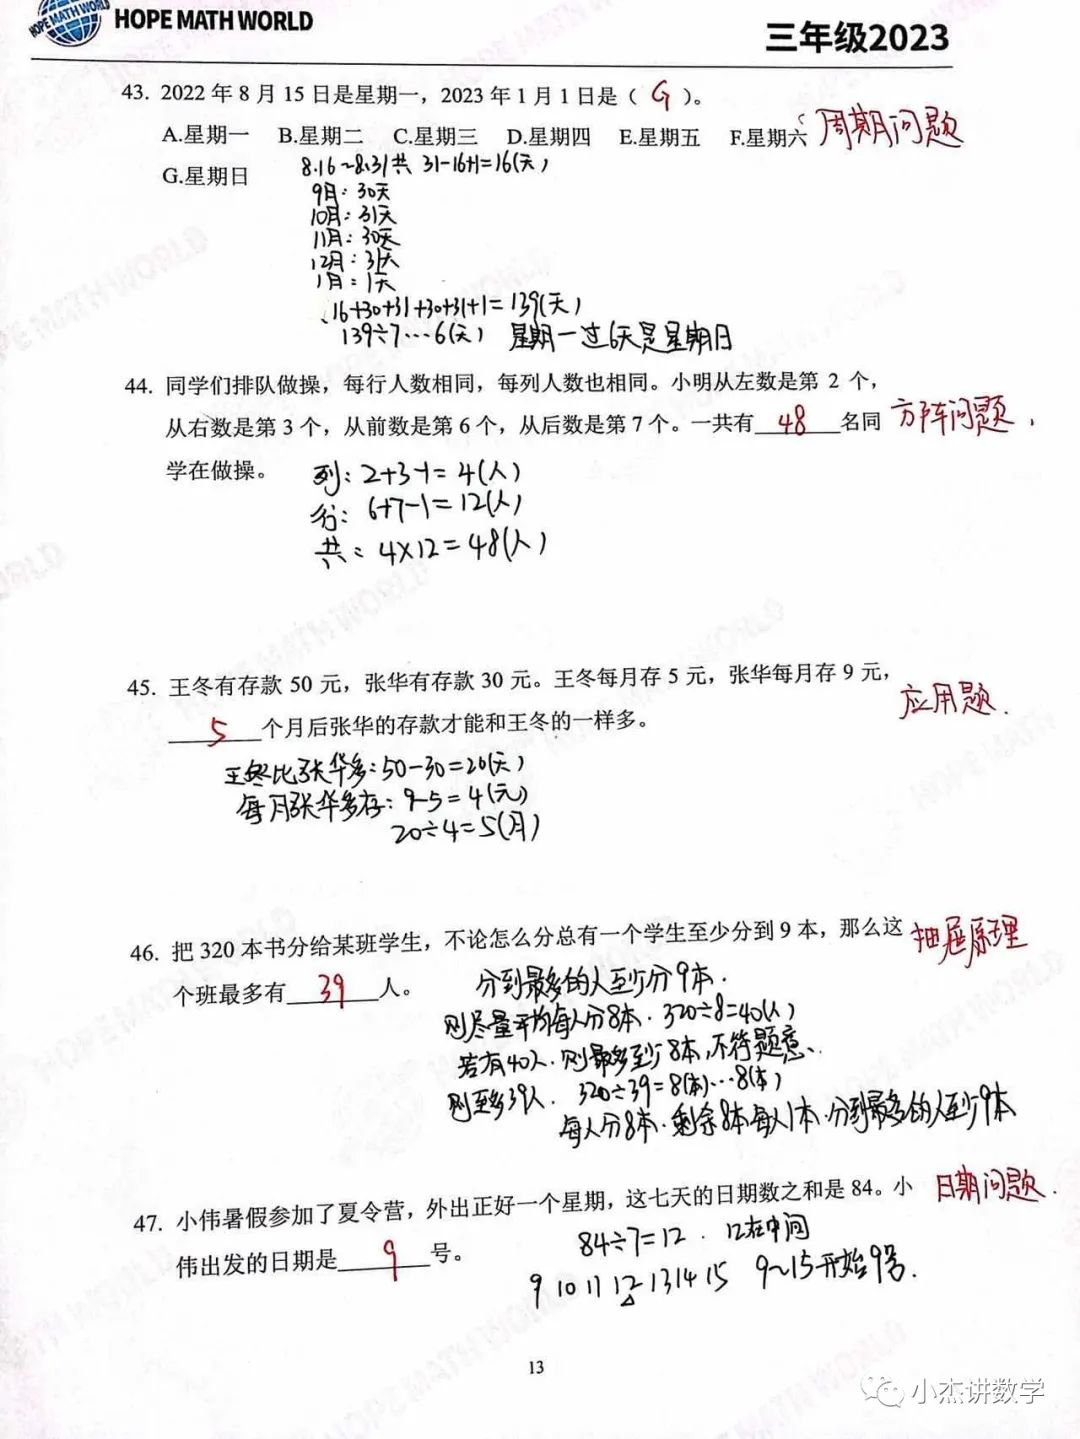 HOPE MATH WORLD
HOPE MATH WORLD
三年级2023
43. 2022 年 8 月 15 日是星期一，2023 年 1 月 1 日是（ G ）。
A.星期一 B.星期二 C.星期三 D.星期四 E.星期五 F.星期六 周期问题
G.星期日
8.16~8.31共 31-16+1=16(天)
9月：30天
10月：31天
11月：30天
12月：31天
1月：1天
16+30+31+30+31+1=139(天)
139÷7…6(天) 星期一过6天是星期日
44. 同学们排队做操，每行人数相同，每列人数也相同。小明从左数是第 2 个，
从右数是第 3 个，从前数是第 6 个，从后数是第 7 个。一共有 48 名同 方阵问题
学在做操。
列：2+3-1=4(人)
6+7-1=12(人)
共：4×12=48(人)
45. 王冬有存款 50 元，张华有存款 30 元。王冬每月存 5 元，张华每月存 9 元，
应用题
5 个月后张华的存款才能和王冬的一样多。
王冬比张华多：50-30=20(天)
每月张华多存：9-5=4(元)
20÷4=5(月)
46. 把 320 本书分给某班学生，不论怎么分总有一个学生至少分到 9 本，那么这 抽屉原理
个班最多有 39 人。
分到最多的人至少分9本.
则尽量平均每人分8本. 320÷8=40(人)
若有40人.则最多至少8本,不符题意.
则至多39人. 320÷39=8(本)…8(本)
每人分8本.剩余8本每人1本.分到最多的人至少9本
47. 小伟暑假参加了夏令营，外出正好一个星期，这七天的日期数之和是 84。小 日期问题.
伟出发的日期是 9 号。
84÷7=12 . 12在中间
9 10 11 12 13 14 15 9~15开始9号.
13
小杰讲数学